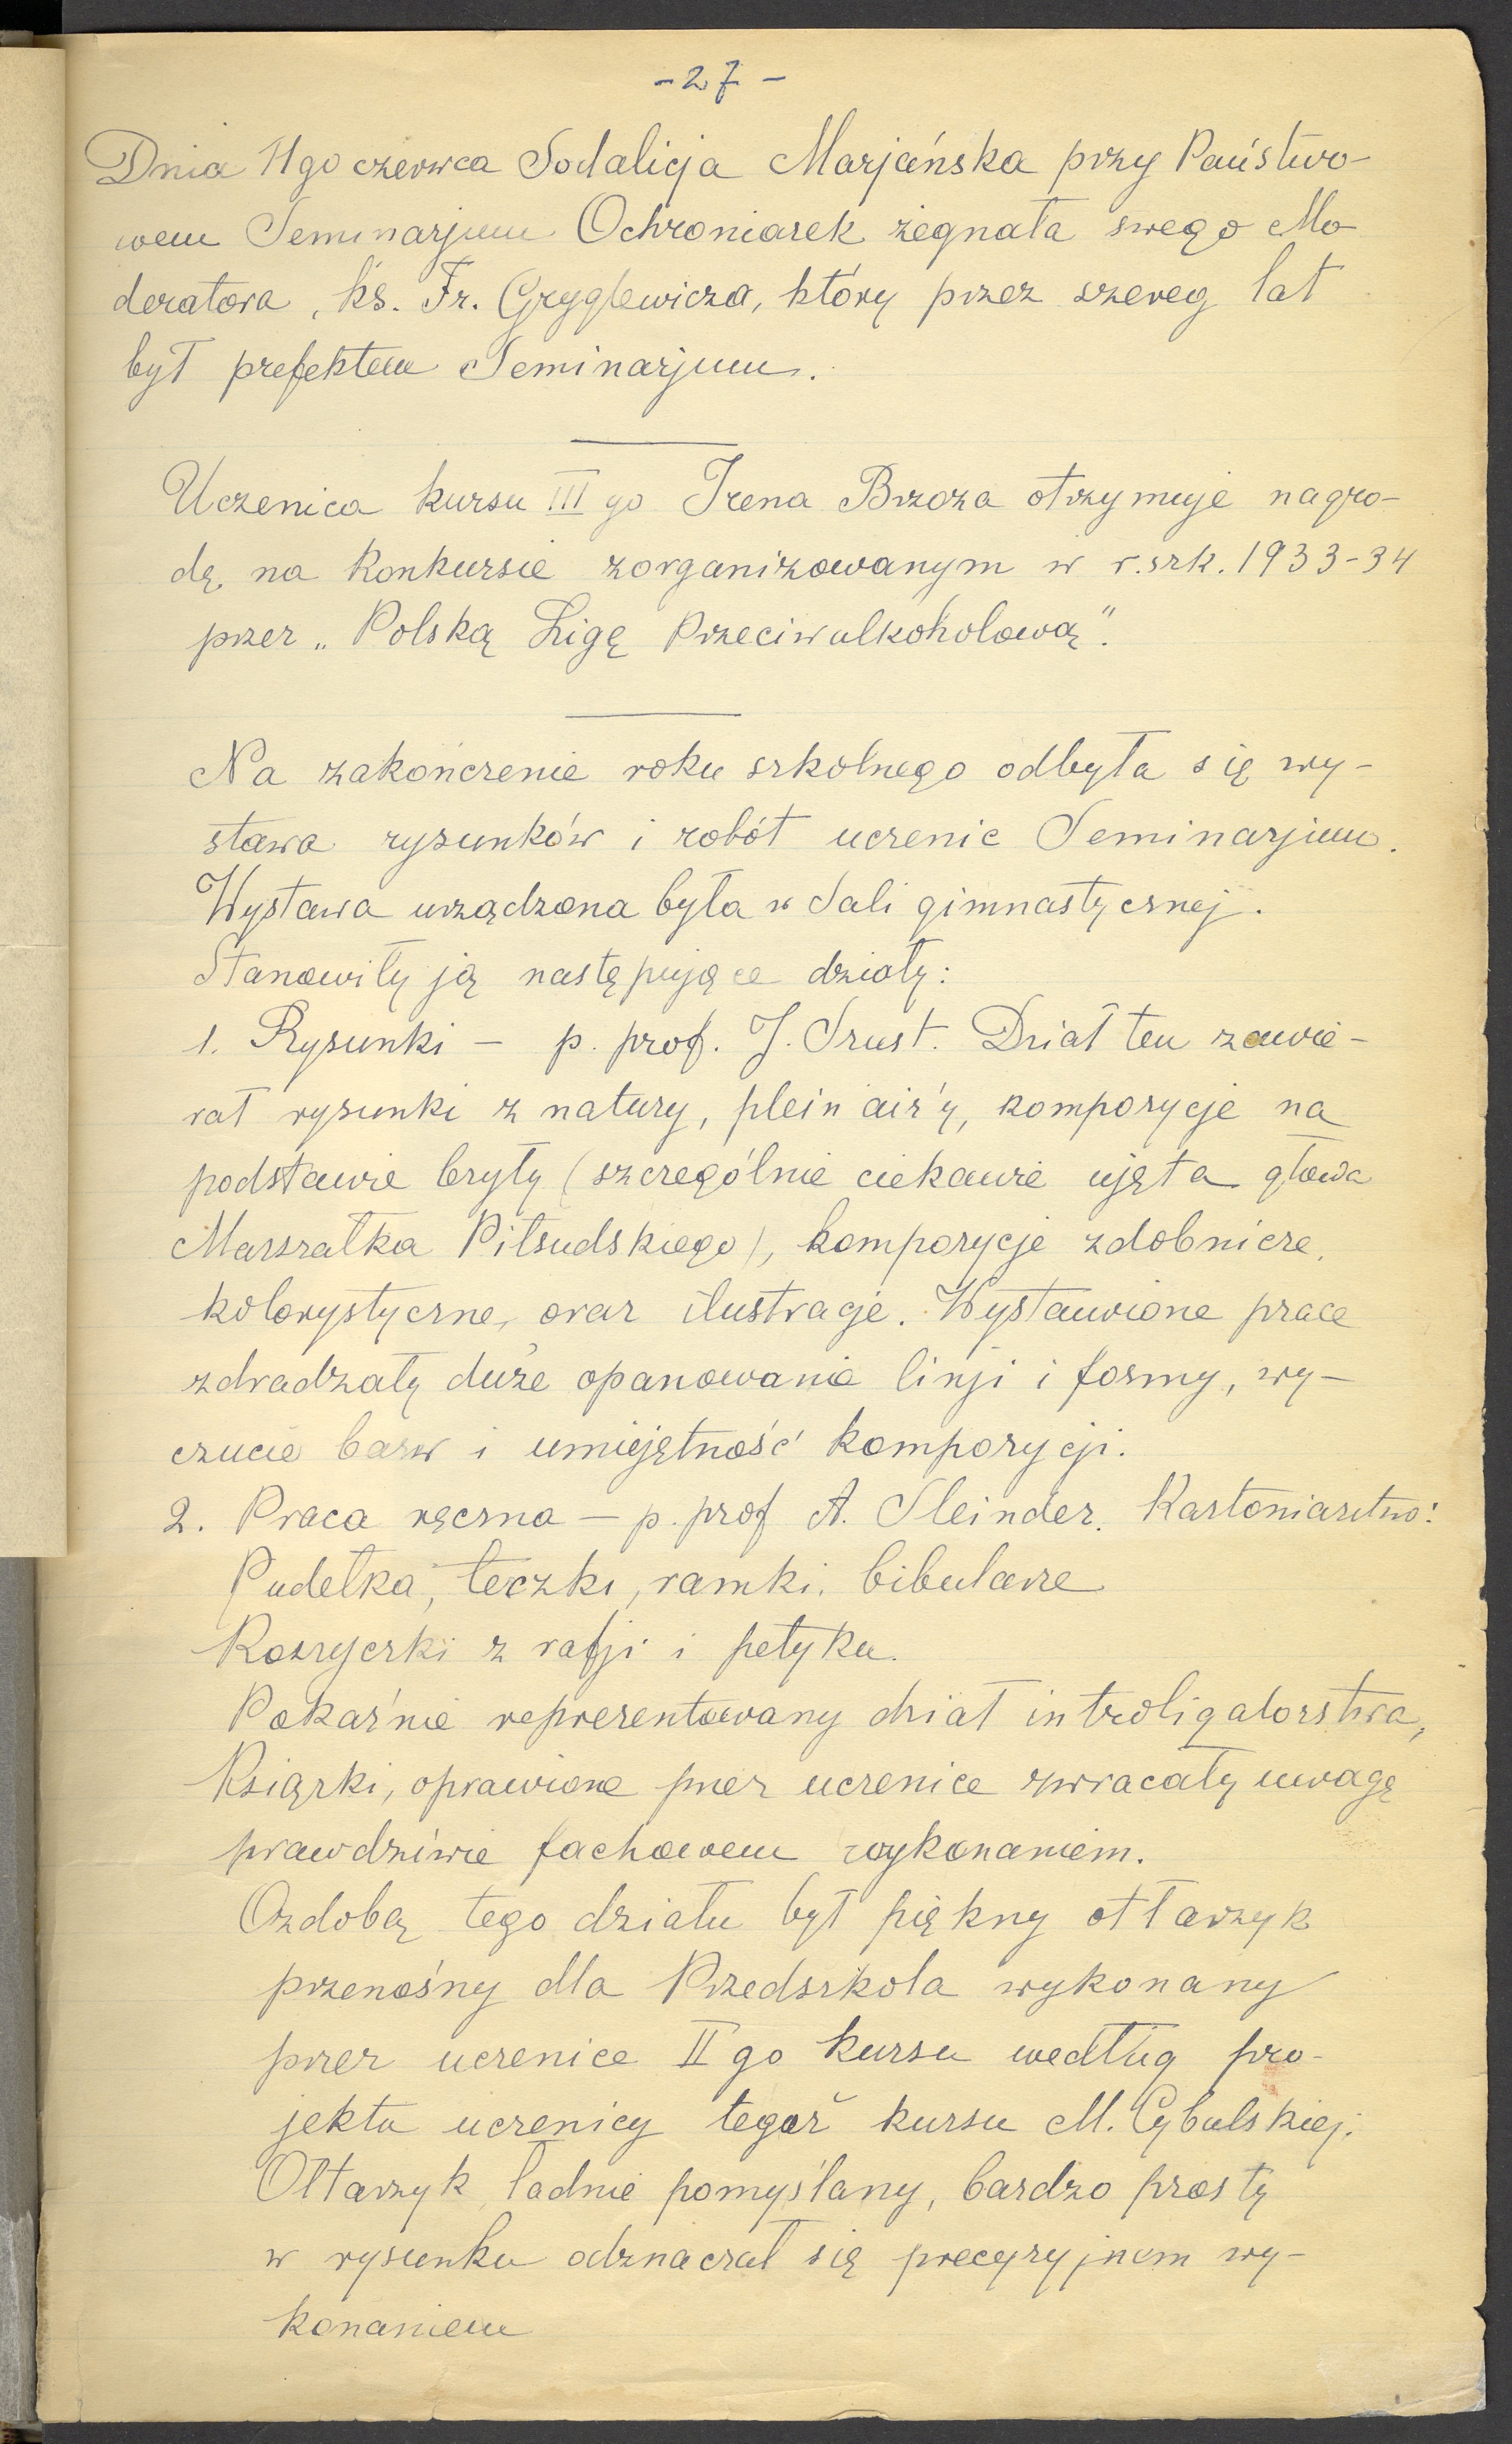 - 27 -
Dnia 11go czerwca Sodalicja Marjańska przy Państwo-
wem Seminarjum Ochroniarek żegnała swego Mo
deratora, ks. Fr. Gryglewicza, który przez szereg lat
był prefektem Seminarjum.
Uczenica kursu III go Irena Brzoza otrzymuje nagro-
dę na konkursie zorganizowanym w r. szk. 1933-34
przez „Polską Ligę Przeciwalkoholową".
Na zakończenie roku szkolnego odbyła się wy-
stawa rysunków i robót uczenic Seminarjum.
Wystawa urządzona była w Sali gimnastycznej.
Stanowiły ją następujące działy:
1. Rysunki - p. prof. J. Srust. Dział ten zawie-
rał rysunki z natury, plein air'y, kompozycje na
podstawie bryły (szczególnie ciekawie ujęta głowa
Marszałka Piłsudskiego), kompozycje zdobnicze,
kolorystyczne, oraz ilustracje. Wystawione prace
zdradzały duże opanowanie linji i formy, wy-
czucie barw i umiejętność kompozycji.
2. Praca ręczna - p. prof A. Sleinder. Kartoniarstwo:
Pudełka, teczki, ramki, bibularze
Koszyczki z rafji i petyku.
Pokaźnie reprezentowany dział introligatorstwa,
Książki, oprawione przez uczenice zwracały uwagę
prawdziwie fachowem wykonaniem.
Ozdobą tego działu był piękny ołtarzyk
przenośny dla Przedszkola wykonany
przez uczenice II go kursu według pro-
jektu uczenicy tegoż kursu M. Cybulskiej.
Ołtarzyk ładnie pomyślany, bardzo prosty
w rysunku odznaczał się precyzyjnem wy-
konaniem